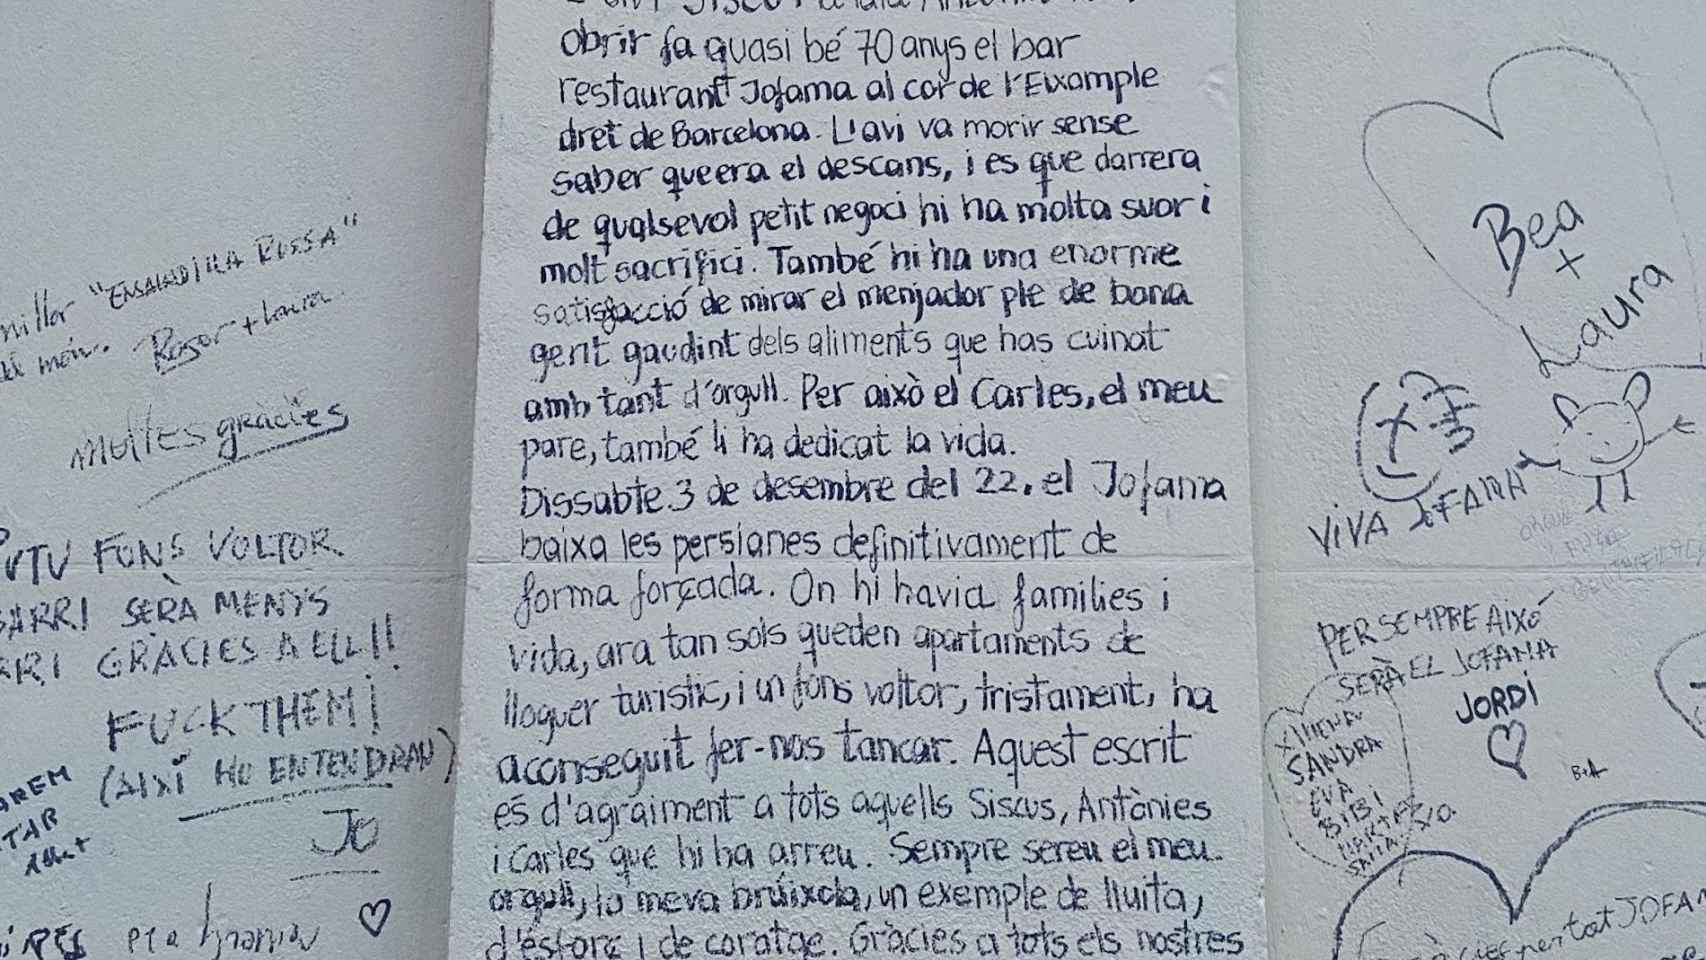 obrir fa quasi bé 70 anys el bar
restaurant Jofama al cor de l'Eixample
dret de Barcelona. L'avi va morir sense
saber que era el descans, i es que darrera
de qualsevol petit negoci hi ha molta suor i
molt sacrifici. També hi ha una enorme
satisfacció de mirar el menjador ple de bona
gent gaudint dels aliments que has cuinat
amb tant d'orgull. Per això el Carles, el meu
pare, també li ha dedicat la vida.
Dissabte 3 de desembre del 22, el Jofama
baixa les persianes definitivament de
forma forçada. On hi havia families i
vida, ara tan sols queden apartaments de
lloguer turistic, i un fons voltor, tristament, ha
aconseguit fer-nos tancar. Aquest escrit
és d'agraiment a tots aquells Siscus, Antònies
i Carles que hi ha arreu. Sempre sereu el meu
orgull, la meva brúixola, un exemple de lluita,
d'esforç i de coratge. Gràcies a tots els nostres
millor "ENSALADILLA RUSSA"
món. Roser + Laura
Moltes gràcies
PUTU FONS VOLTOR
BARRI SERÀ MENYS
BARRI GRÀCIES A ELL!!
FUCK THEM!
(AIXÍ HO ENTENDRAN)
JO
Bea
+
Laura
VIVA JOFAMA
PER SEMPRE AIXÓ
SERÀ EL JOFAMA
JORDI
XIMENA
SANDRA
EVA
BIBI
MARTA
B+A
per tot JOFAM